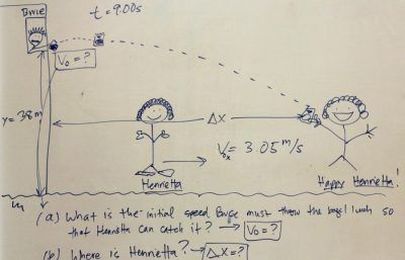 Bruce
t = 9.00s
V₀ = ?
y = 38m
Δx
V₀ₓ = 3.05 m/s
Henrietta
Happy Henrietta!
(a) What is the initial speed Bruce must throw the bagel lunch so
that Henrietta can catch it? → V₀ = ?
(b) Where is Henrietta? → Δx = ?